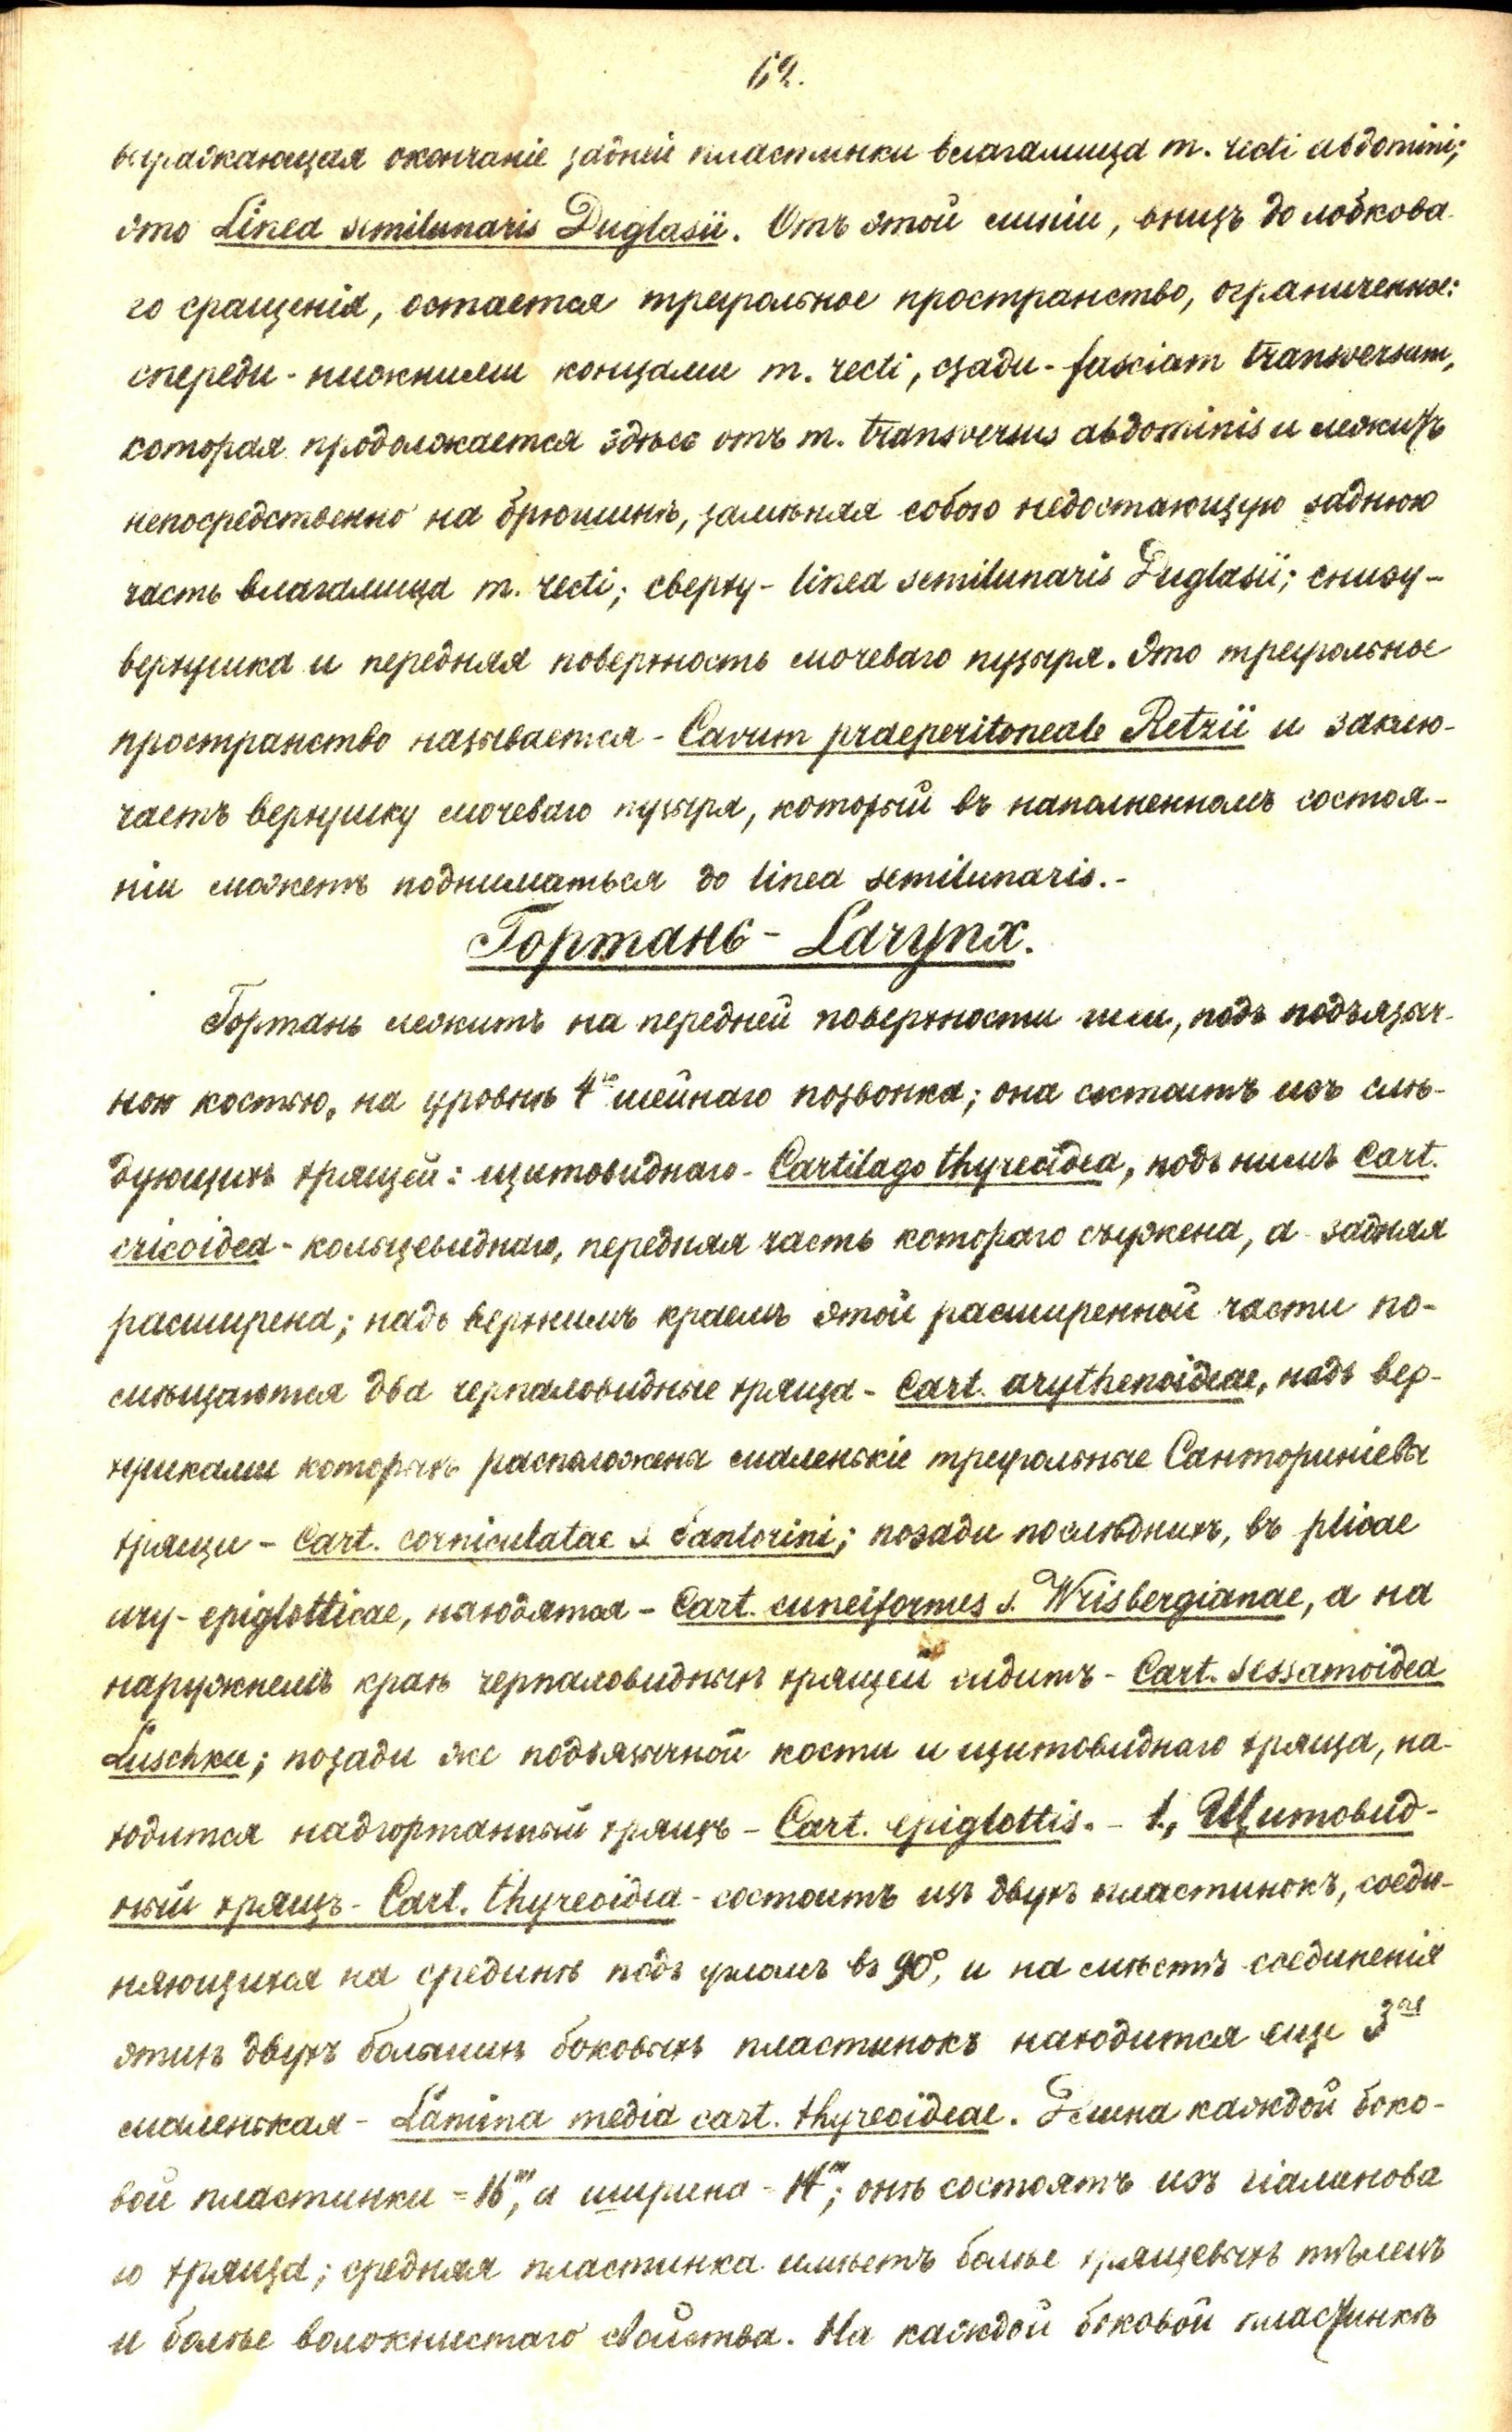 62.
выражающая окончаніе задней пластинки влагалища m. recti abdomini;
это Linea semilunaris Duglasii. Отъ этой линіи, внизъ до лобкова
го сращенія, остается треугольное пространство, ограниченное:
спереди - нижними концами m. recti, сзади - fasciam transversam,
которая продолжается здѣсь отъ m. transversus abdominis и лежитъ
непосредственно на брюшинѣ, замѣняя собою недостающую заднюю
часть влагалища m. recti; сверху - linea semilunaris Duglasii; снизу -
верхушка и передняя поверхность мочеваго пузыря. Это треугольное
пространство называется - Cavum praeperitoneale Retzii и заклю-
чаетъ верхушку мочеваго пузыря, который въ наполненномъ состоя-
ніи можетъ подниматься до linea semilunaris. -
Гортань - Larynx.
Гортань лежитъ на передней поверхности шеи, подъ подъязыч-
ною костью, на уровнѣ 4го шейнаго позвонка; она состоитъ изъ слѣ-
дующихъ хрящей: щитовиднаго - Cartilago thyreoidea, подъ нимъ Cart.
cricoidea - кольцевиднаго, передняя часть котораго съужена, а задняя
расширена; надъ верхнимъ краемъ этой расширенной части по-
мѣщаются два черпаловидные хряща - Cart. arythenoideae, надъ вер-
хушками которыхъ расположены маленькіе треугольные Санториніевы
хрящи - Cart. corniculatae s. Santorini; позади послѣднихъ, въ plicae
ary - epiglotticae, находятся - Cart. cuneiformes s. Wrisbergianae, а на
наружнемъ краѣ черпаловидныхъ хрящей сидитъ - Cart. sessamoidea
Luschkae; позади же подъязычной кости и щитовиднаго хряща, на-
ходится надгортанный хрящъ - Cart. epiglottis. - 1., Щитовид-
ный хрящъ - Cart. thyreoidea - состоитъ изъ двухъ пластинокъ, соеди-
няющихся на срединѣ подъ угломъ въ 90°, и на мѣстѣ соединенія
этихъ двухъ большихъ боковыхъ пластинокъ находится еще 3ая
маленькая - Lamina media cart. thyreoideae. Длина каждой боко-
вой пластинки = 16''', а ширина - 14'''; онѣ состоятъ изъ гіалинова
го хряща; средняя пластинка имѣетъ болѣе хрящевыхъ тѣлецъ
и болѣе волокнистаго свойства. На каждой боковой пластинкѣ